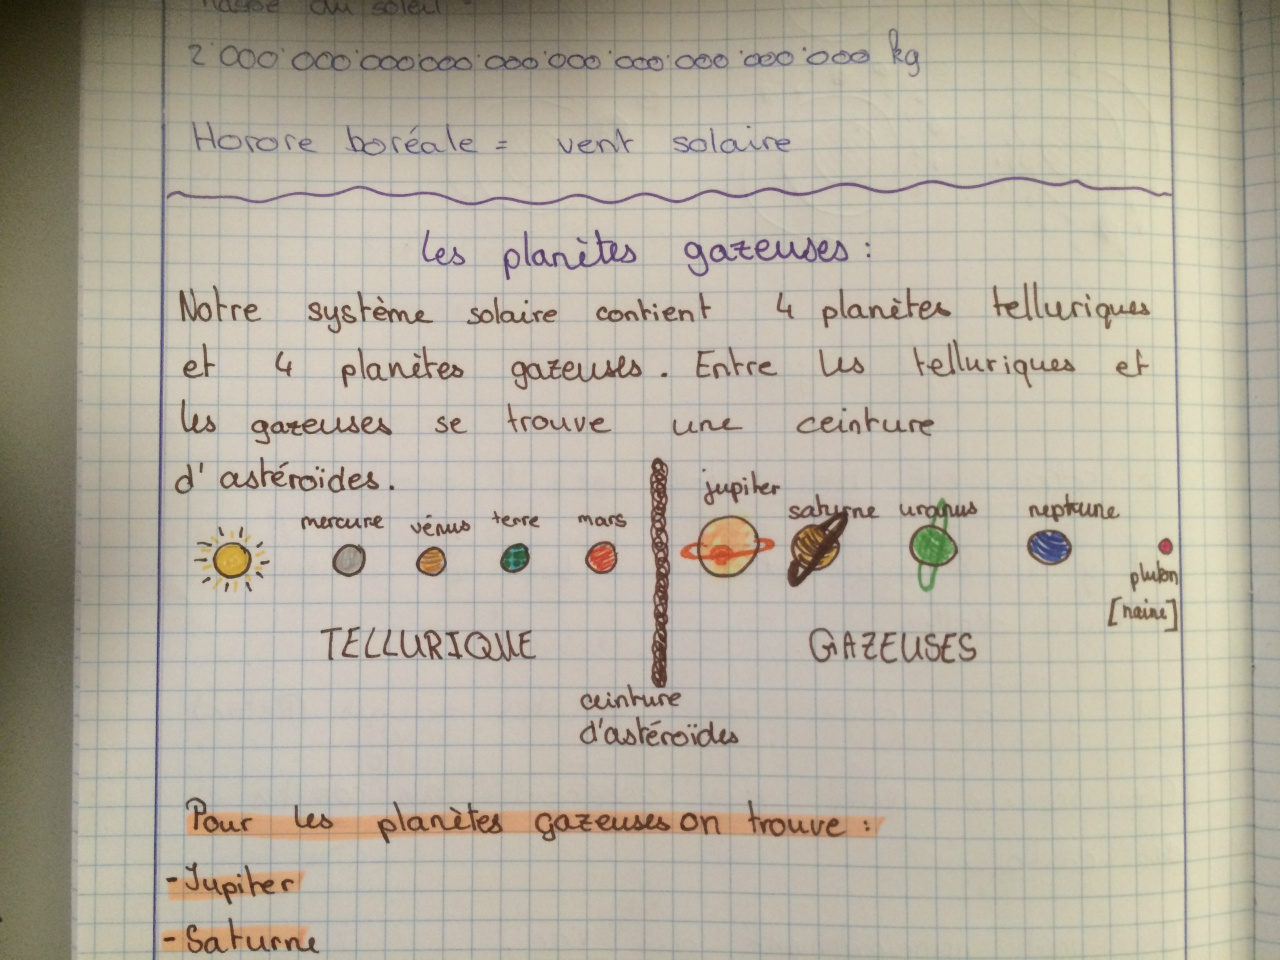 masse du soleil
2'000'000'000'000'000'000'000'000'000'000 kg
Horore boréale = vent solaire
Les planètes gazeuses :
Notre système solaire contient 4 planètes telluriques
et 4 planètes gazeuses. Entre les telluriques et
les gazeuses se trouve une ceinture
d'astéroïdes.
mercure vénus terre mars jupiter saturne uranus neptune
pluton
[naine]
TELLURIQUE GAZEUSES
ceinture
d'astéroïdes
Pour les planètes gazeuses on trouve :
- Jupiter
- Saturne